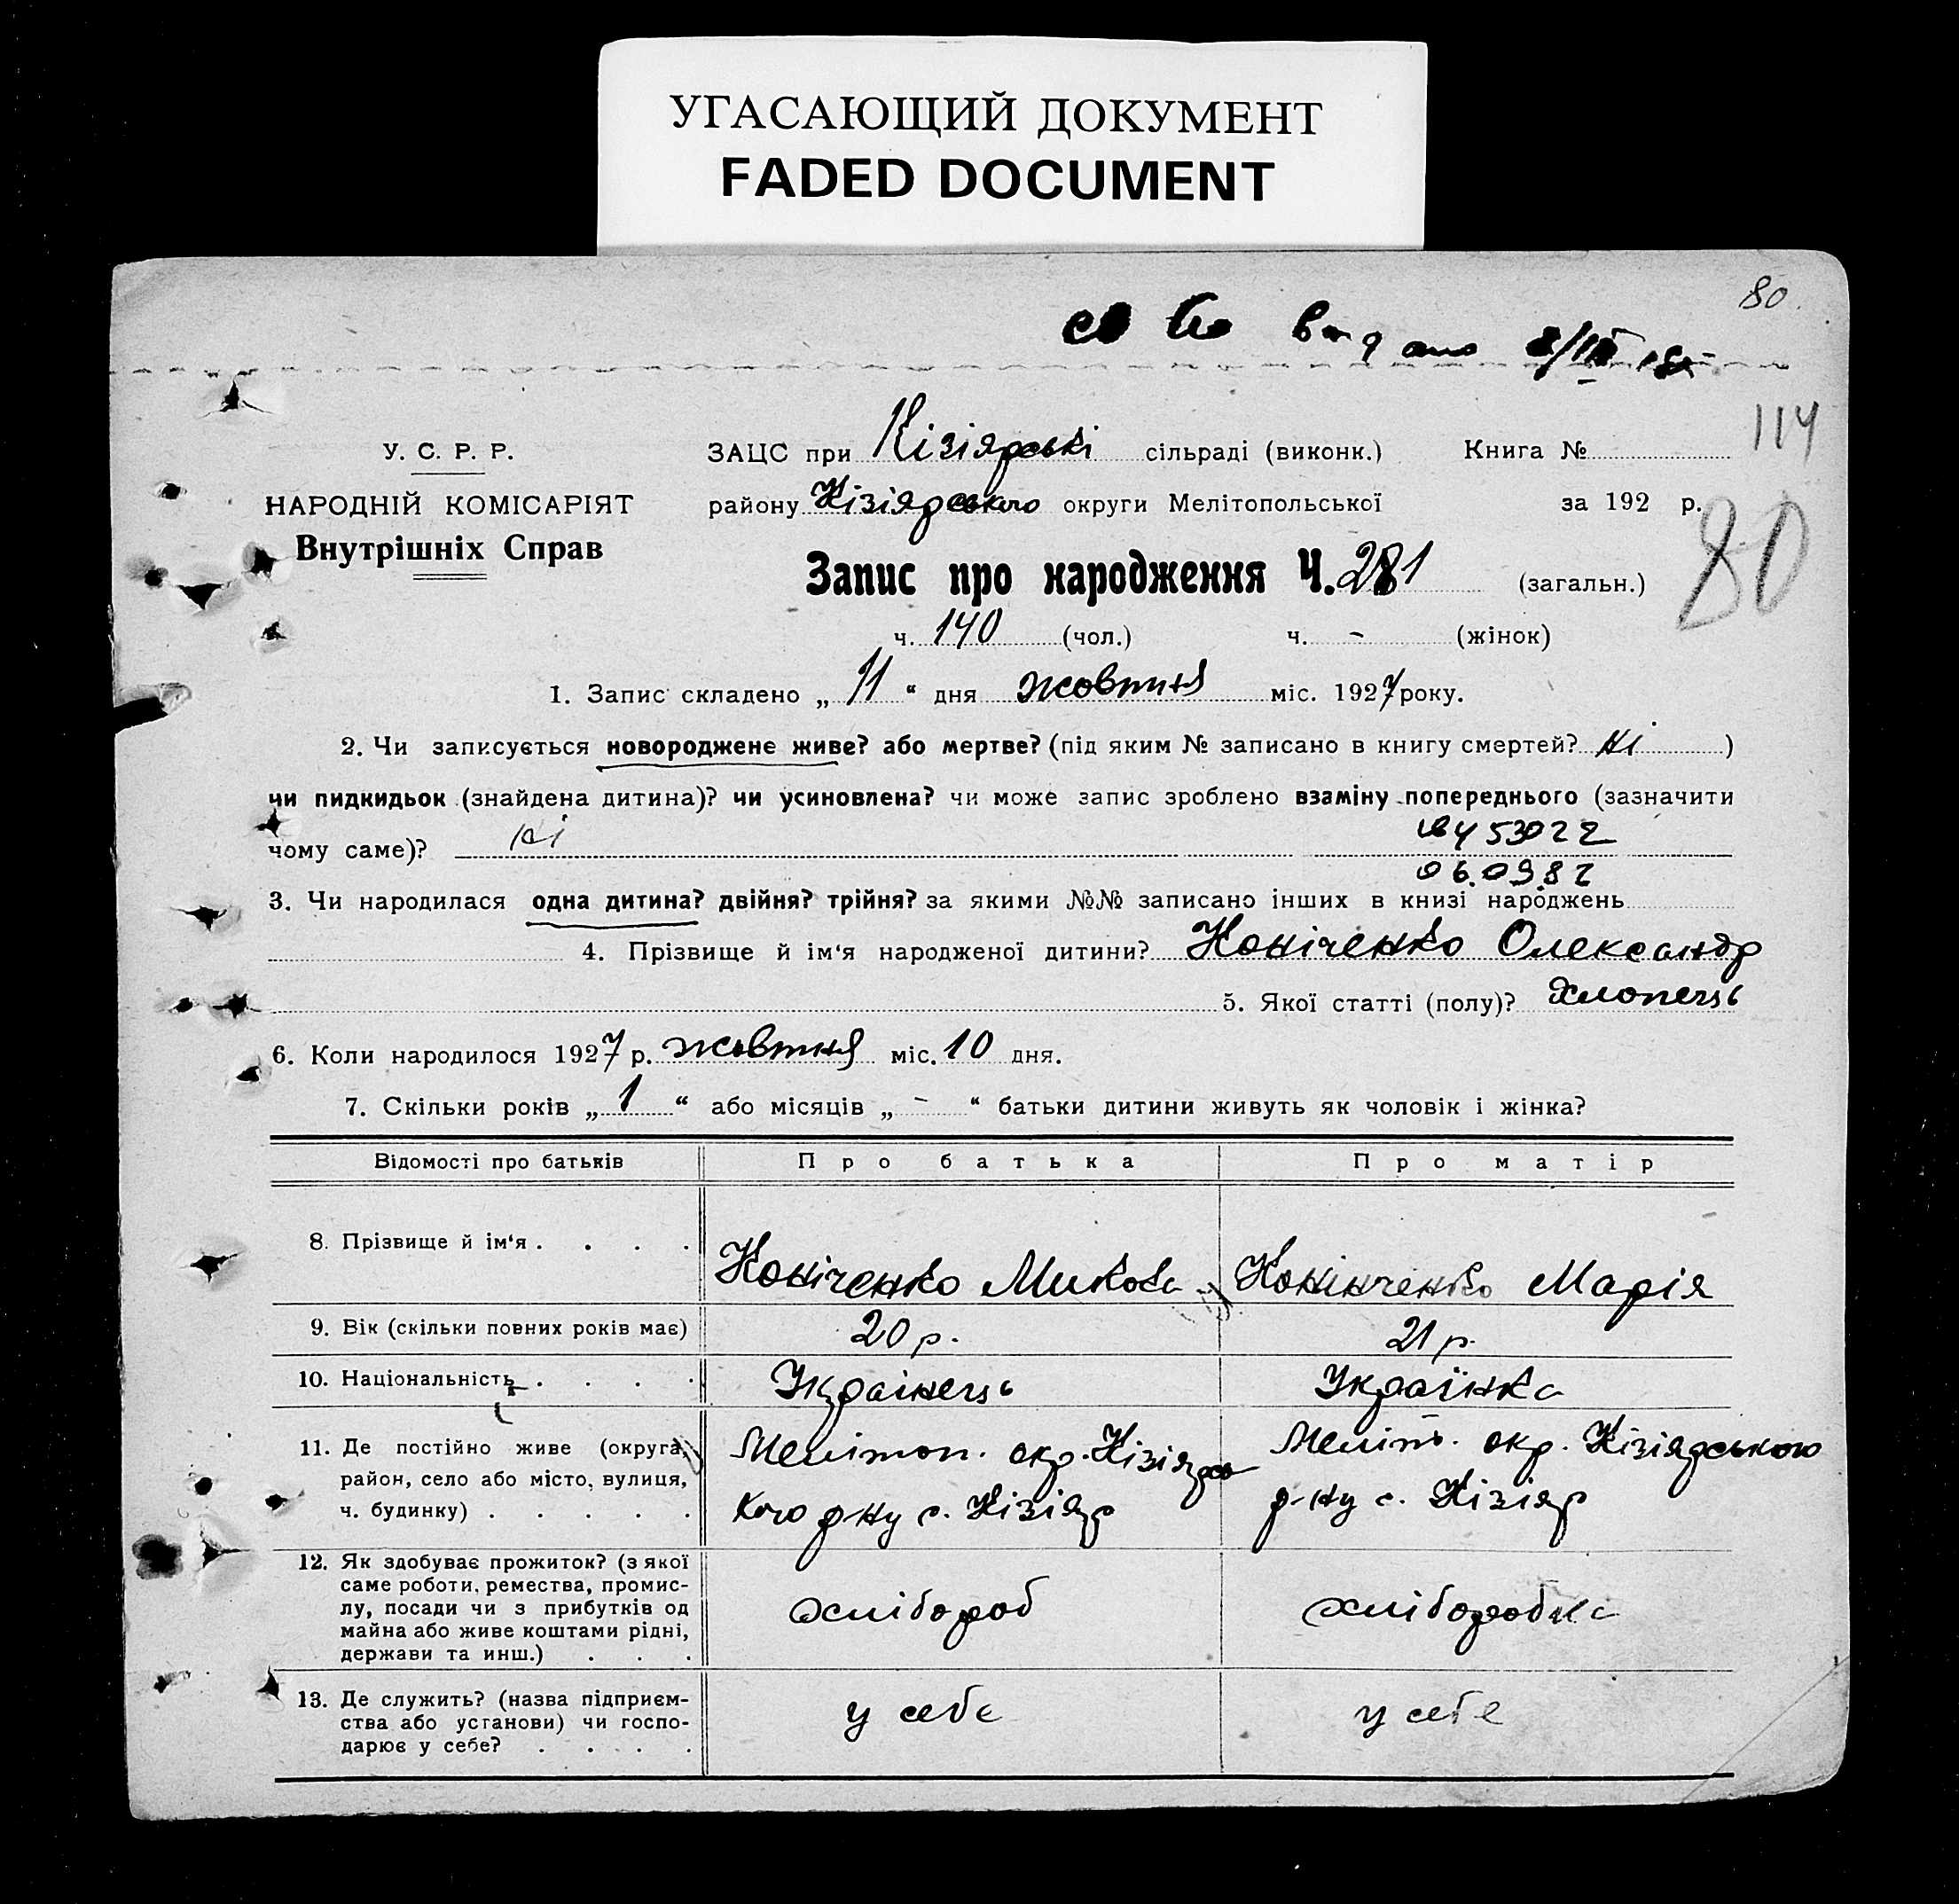 УГАСАЮЩИЙ ДОКУМЕНТ
FADED DOCUMENT
80
114
У. С. Р. Р.
НАРОДНІЙ КОМІСАРІЯТ
Внутрішніх Справ
ЗАЦС при Кізіярські сільраді (виконк.) Книга №
району Кізіярського округи Мелітопольської за 192 р.
80
Запис про народження Ч. 281 (загальн.)
ч. 140 (чол.) ч. - (жінок)
1. Запис складено „ 11 “ дня жовтня міс. 1927 року.
2. Чи записується новороджене живе? або мертве? (під яким № записано в книгу смертей? ні )
чи пидкидьок (знайдена дитина)? чи усиновлена? чи може запис зроблено взаміну попереднього (зазначити
чому саме)? ні
06.09.82
3. Чи народилася одна дитина? двійня? трійня? за якими №№ записано інших в книзі народжень
4. Прізвище й ім‘я народженої дитини? Коніченко Олександр
5. Якої статті (полу)? Хлопець
6. Коли народилося 1927 р. жовтня міс. 10 дня.
7. Скільки років „ 1 “ або місяців „ - “ батьки дитини живуть як чоловік і жінка?
Відомості про батьків Про батька Про матір
8. Прізвище й ім‘я . . . . Коніченко Микола Конінченко Марія
9. Вік (скільки повних років має) 20 р. 21 р.
10. Національність . . . . Українець Українка
11. Де постійно живе (округа, Мелітоп. окр. Кізіярсь Меліт. окр. Кізіярського
район, село або місто, вулиця, кого р-ну с. Кізіяр р-ну с. Кізіяр
ч. будинку) . . . . .
12. Як здобуває прожиток? (з якої
саме роботи, ремества, промис-
лу, посади чи з прибутків од хлібороб хліборобка
майна або живе коштами рідні,
держави та инш.) . . .
13. Де служить? (назва підприєм-
ства або установи) чи госпо- у себе у себе
дарює у себе? . . . .